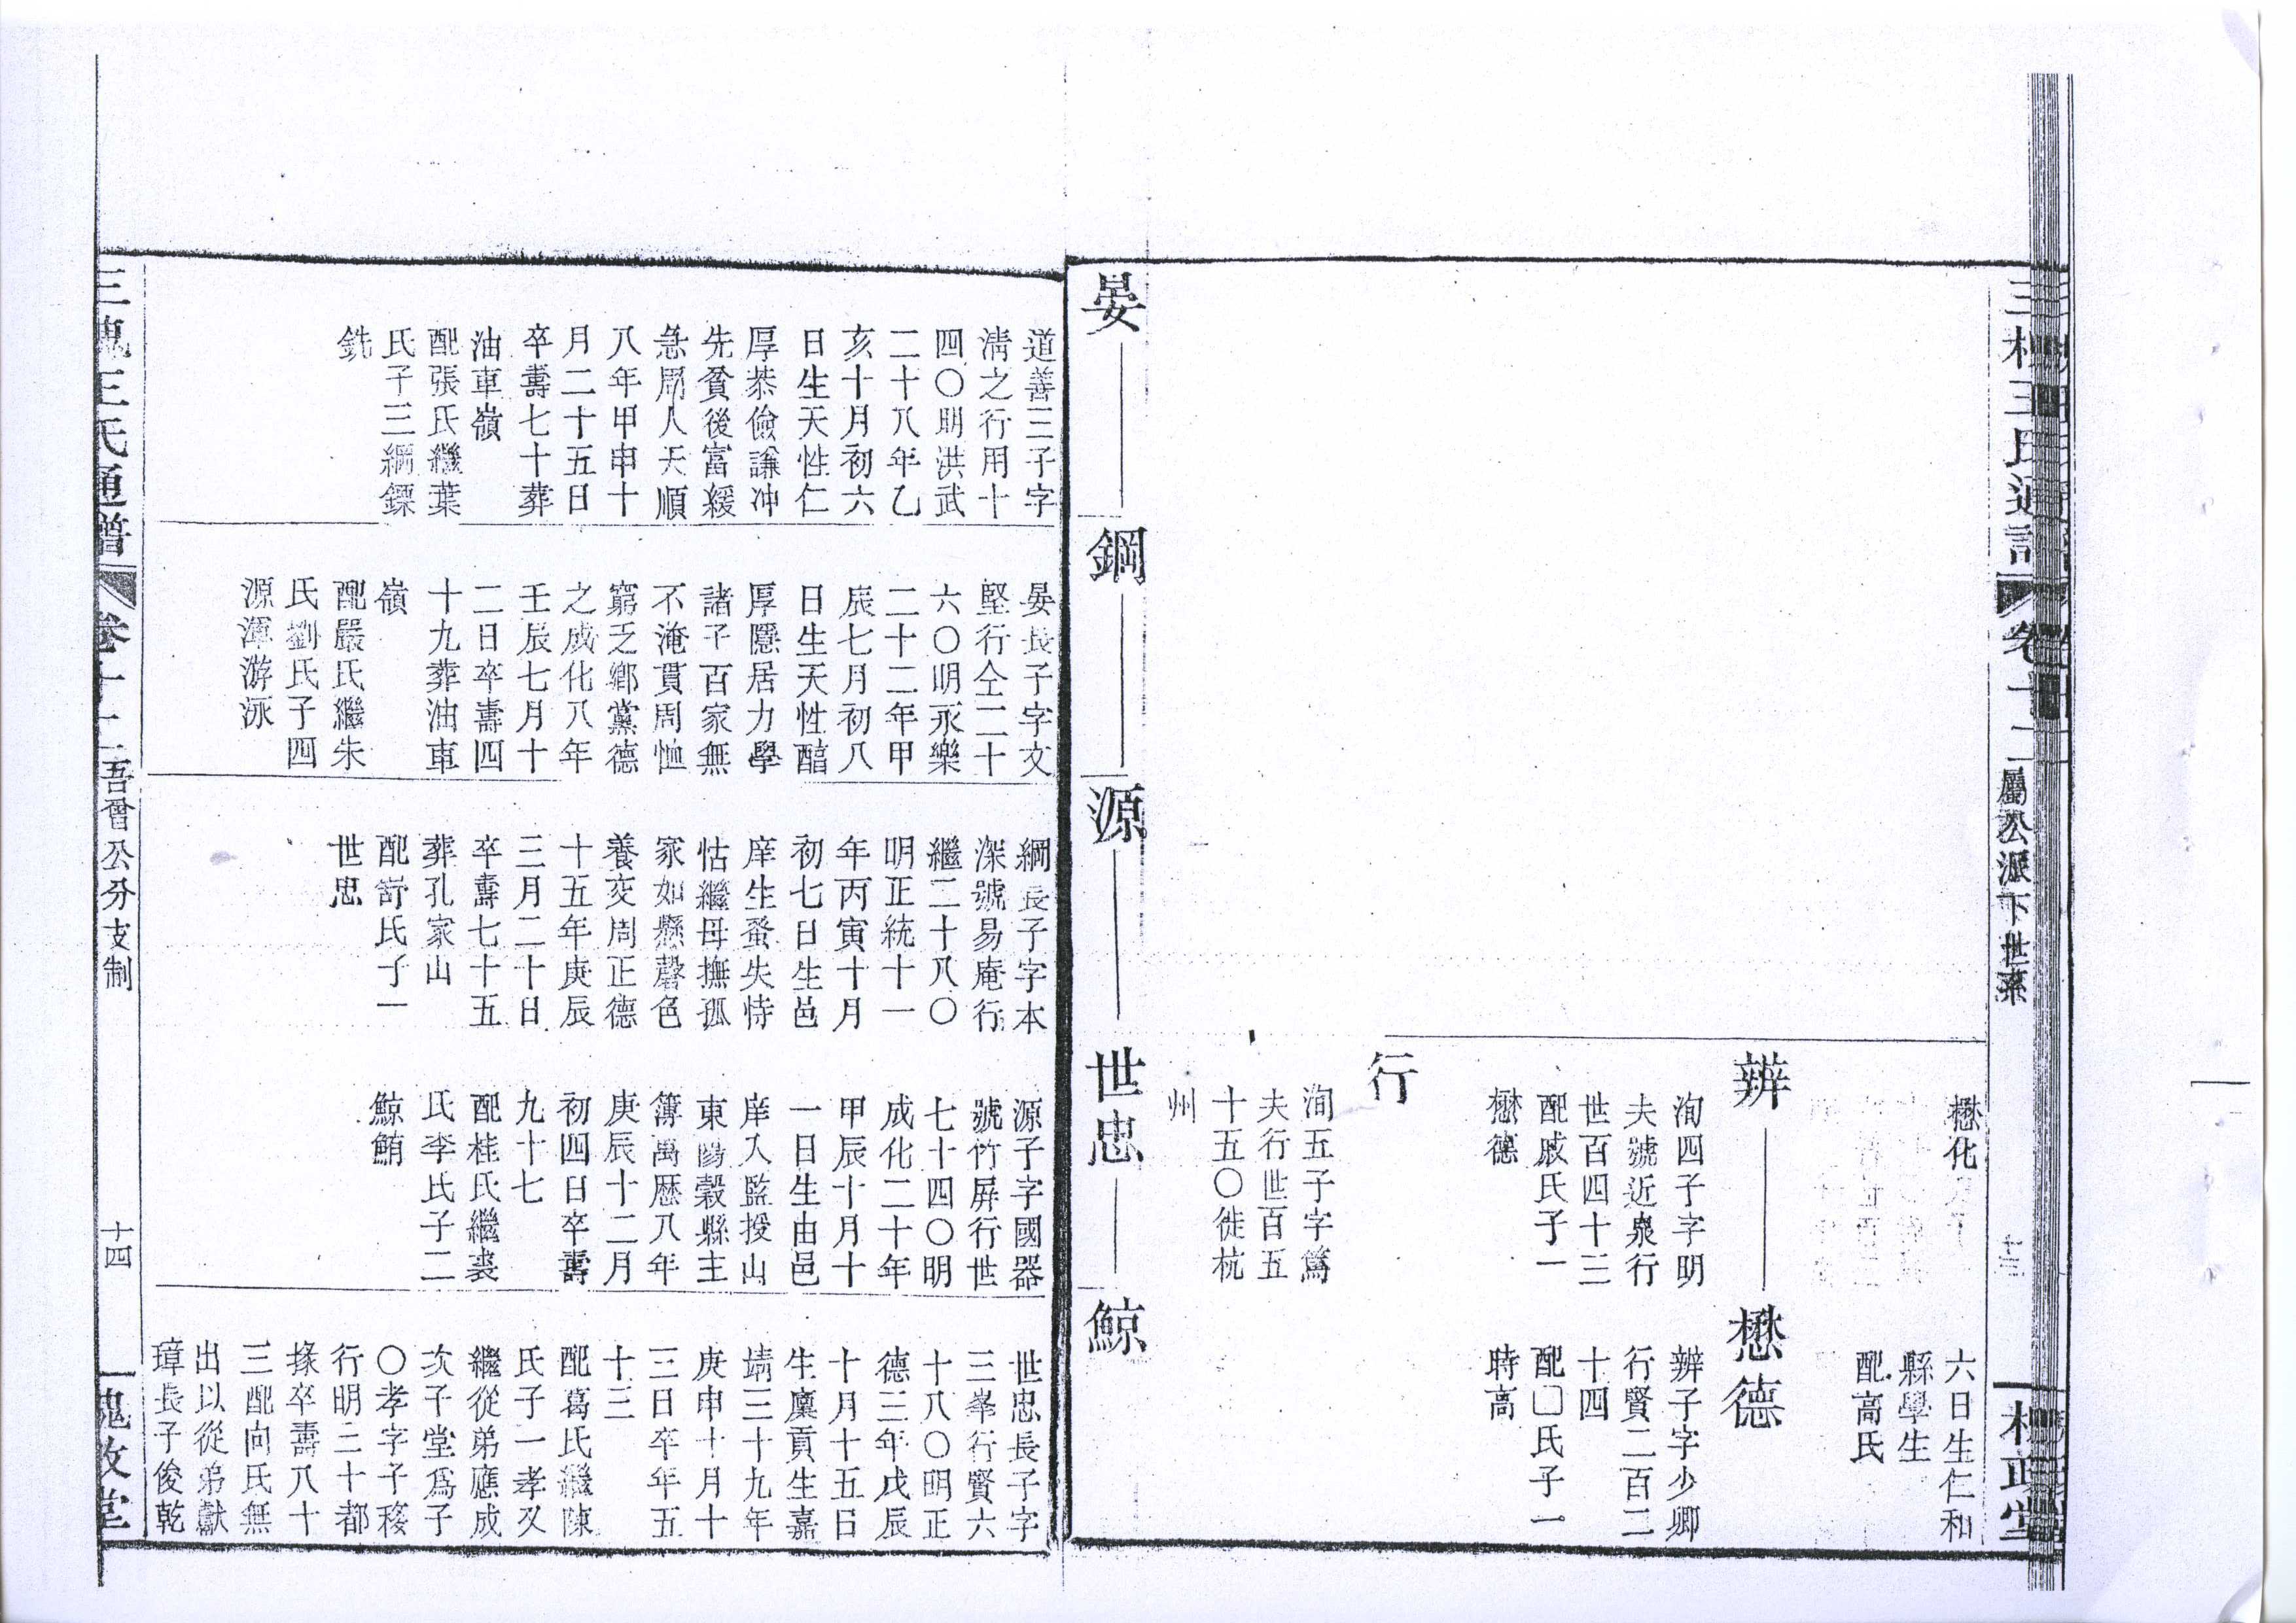 三槐王氏通譜
卷十二
屬公派下世系
槐政堂
懋化
六日生仁和
縣學生
配高氏
辨
洵四子字明
夫號近泉行
世百四十三
配戚氏子一
懋德
懋德
辨子字少卿
行賢二百二
十四
配□氏子一
時高
行
洵五子字篤
夫行世百五
十五〇徙杭
州
晏
鋼
源
世忠
鯨
道善三子字
淸之行用十
四〇明洪武
二十八年乙
亥十月初六
日生天性仁
厚恭儉謙冲
先貧後富緩
急周人天順
八年甲申十
月二十五日
卒壽七十葬
油車嶺
配張氏繼葉
氏子三綱鏢
銑
晏長子字文
堅行仝二十
六〇明永樂
二十二年甲
辰七月初八
日生天性醕
厚隱居力學
諸子百家無
不淹貫周恤
窮乏鄉黨德
之成化八年
壬辰七月十
二日卒壽四
十九葬油車
嶺
配嚴氏繼朱
氏劉氏子四
源渾游泳
綱長子字本
深號易庵行
繼二十八〇
明正統十一
年丙寅十月
初七日生邑
庠生蚤失恃
怙繼母撫孤
家如懸磬色
養交周正德
十五年庚辰
三月二十日
卒壽七十五
葬孔家山
配舒氏子一
世忠
源子字國器
號竹屏行世
七十四〇明
成化二十年
甲辰十月十
一日生由邑
庠入監授山
東陽穀縣主
簿萬歷八年
庚辰十二月
初四日卒壽
九十七
配桂氏繼裘
氏李氏子二
鯨鮪
世忠長子字
三峯行賢六
十八〇明正
德三年戊辰
十月十五日
生廩貢生嘉
靖三十九年
庚申十月十
三日卒年五
十三
配葛氏繼陳
氏子一孝又
繼從弟應成
次子堂爲子
〇孝字子移
行明二十都
掾卒壽八十
三配向氏無
出以從弟獻
璋長子俊乾
三槐王氏通譜
卷十二
吾晉公分支制
十四
槐政堂